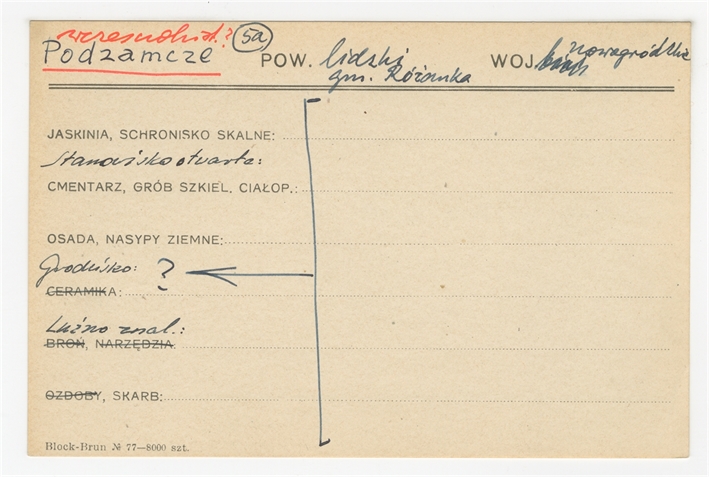 wczesnohist.? 5a
Podzamcze POW. lidzki WOJ. nowogródzkie
gm. Różanka
JASKINIA, SCHRONISKO SKALNE:
Stanowisko otwarte:
CMENTARZ, GRÓB SZKIEL. CIAŁOP.:
OSADA, NASYPY ZIEMNE:
Grodzisko: ?
CERAMIKA:
Luźno znal.:
BROŃ, NARZĘDZIA
OZDOBY, SKARB:
Block-Brun № 77—8000 szt.